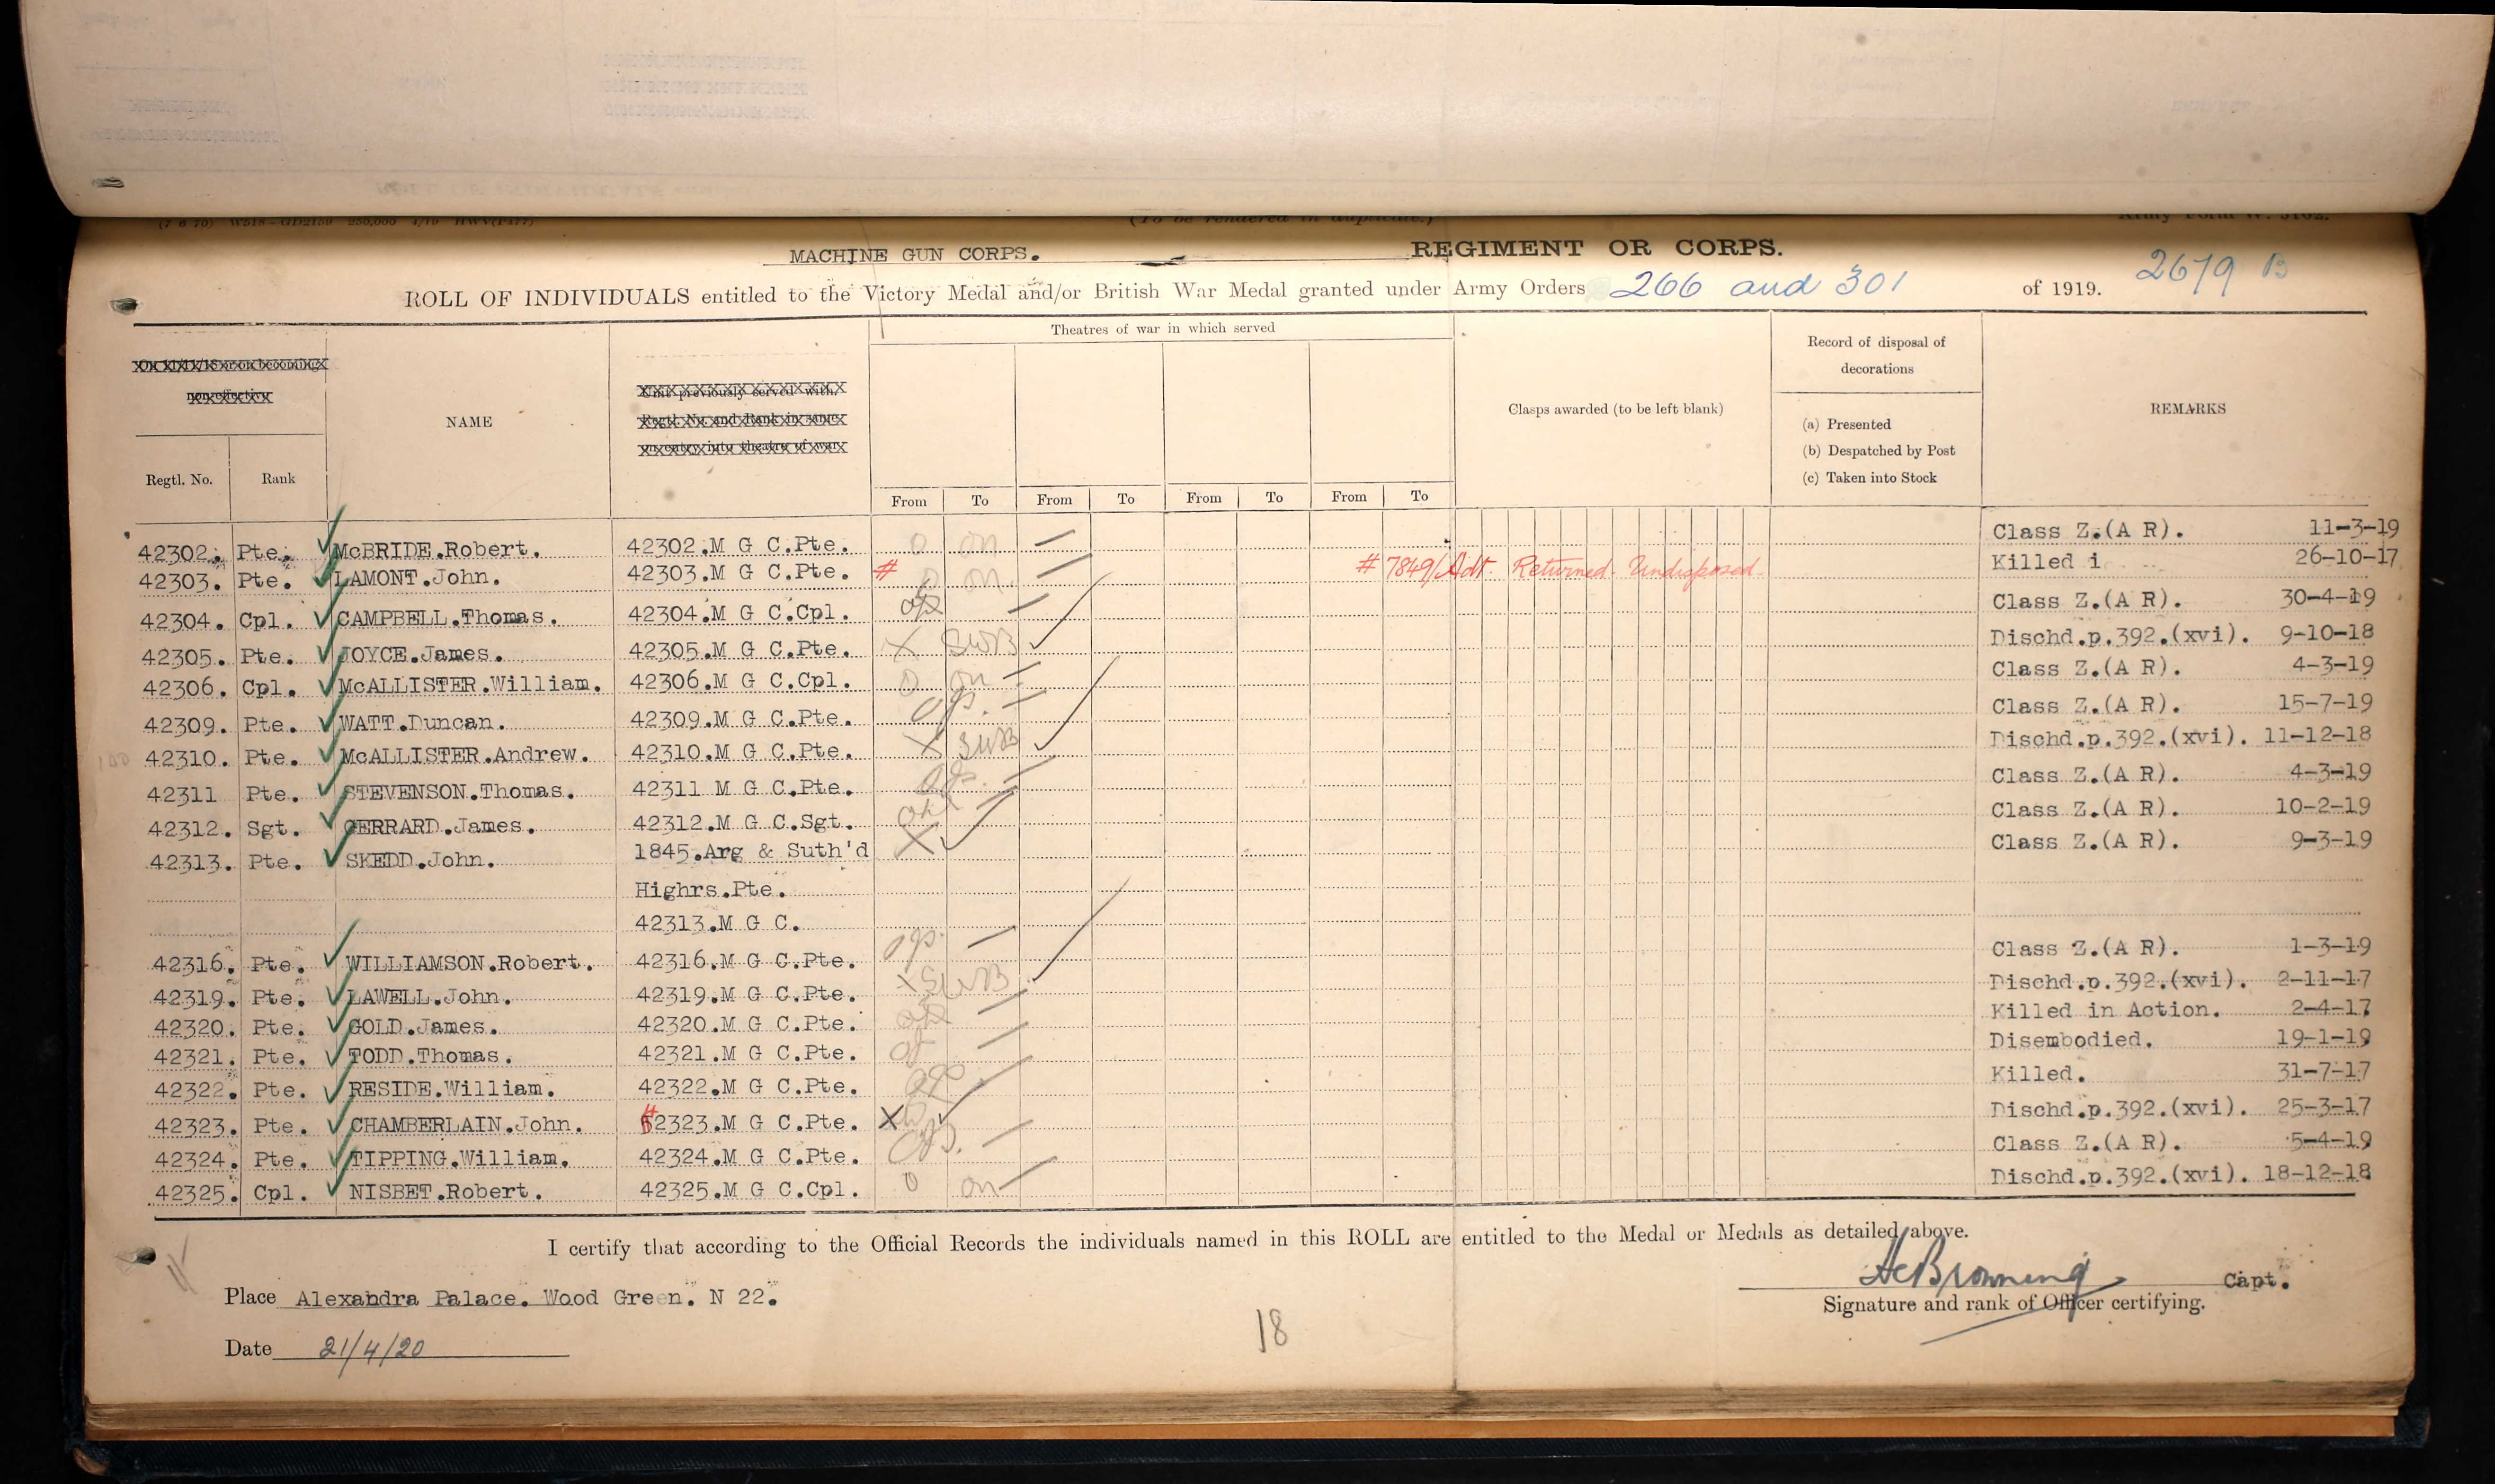 (7 6 70) W518—GD2159 250,000 4/19 HWV(P177)
(To be rendered in duplicate.)
Army Form W. 5162.
MACHINE GUN CORPS. REGIMENT OR CORPS.
2679 B
ROLL OF INDIVIDUALS entitled to the Victory Medal and/or British War Medal granted under Army Orders 266 and 301 of 1919.
Theatres of war in which served
On 11/11/18 or on becoming
non-effective
NAME
Unit previously served with.
Regtl. No. and Rank in same
on entry into theatre of war
Clasps awarded (to be left blank)
Record of disposal of
decorations
(a) Presented
(b) Despatched by Post
(c) Taken into Stock
REMARKS
Regtl. No. Rank
From To From To From To From To
42302. Pte. McBRIDE.Robert. 42302.M G C.Pte. O on Class Z.(A R). 11-3-19
42303. Pte. LAMONT.John. 42303.M G C.Pte. # O on # 7849/Adt. Returned. Undisposed Killed i 26-10-17
42304. Cpl. CAMPBELL.Thomas. 42304.M G C.Cpl. Class Z.(A R). 30-4-19
42305. Pte. JOYCE.James. 42305.M G C.Pte. X SWB Dischd.p.392.(xvi). 9-10-18
42306. Cpl. McALLISTER.William. 42306.M G C.Cpl. O on Class Z.(A R). 4-3-19
42309. Pte. WATT.Duncan. 42309.M G C.Pte. Class Z.(A R). 15-7-19
42310. Pte. McALLISTER.Andrew. 42310.M G C.Pte. X SWB Dischd.p.392.(xvi). 11-12-18
42311 Pte. STEVENSON.Thomas. 42311 M G C.Pte. Class Z.(A R). 4-3-19
42312. Sgt. GERRARD.James. 42312.M G C.Sgt. Class Z.(A R). 10-2-19
42313. Pte. SKEDD.John. 1845.Arg & Suth'd X Class Z.(A R). 9-3-19
Highrs.Pte.
42313.M G C.
42316. Pte. WILLIAMSON.Robert. 42316.M G C.Pte. Class Z.(A R). 1-3-19
42319. Pte. LAWELL.John. 42319.M G C.Pte. X SWB Dischd.p.392.(xvi). 2-11-17
42320. Pte. GOLD.James. 42320.M G C.Pte. Killed in Action. 2-4-17
42321. Pte. TODD.Thomas. 42321.M G C.Pte. Disembodied. 19-1-19
42322. Pte. RESIDE.William. 42322.M G C.Pte. Killed. 31-7-17
42323. Pte. CHAMBERLAIN.John. 42323.M G C.Pte. X Dischd.p.392.(xvi). 25-3-17
42324. Pte. TIPPING.William. 42324.M G C.Pte. Class Z.(A R). 5-4-19
42325. Cpl. NISBET.Robert. 42325.M G C.Cpl. O on Dischd.p.392.(xvi). 18-12-18
I certify that according to the Official Records the individuals named in this ROLL are entitled to the Medal or Medals as detailed above.
HcBrowning Capt.
Place Alexandra Palace. Wood Green. N 22.
Signature and rank of Officer certifying.
18
Date 21/4/20